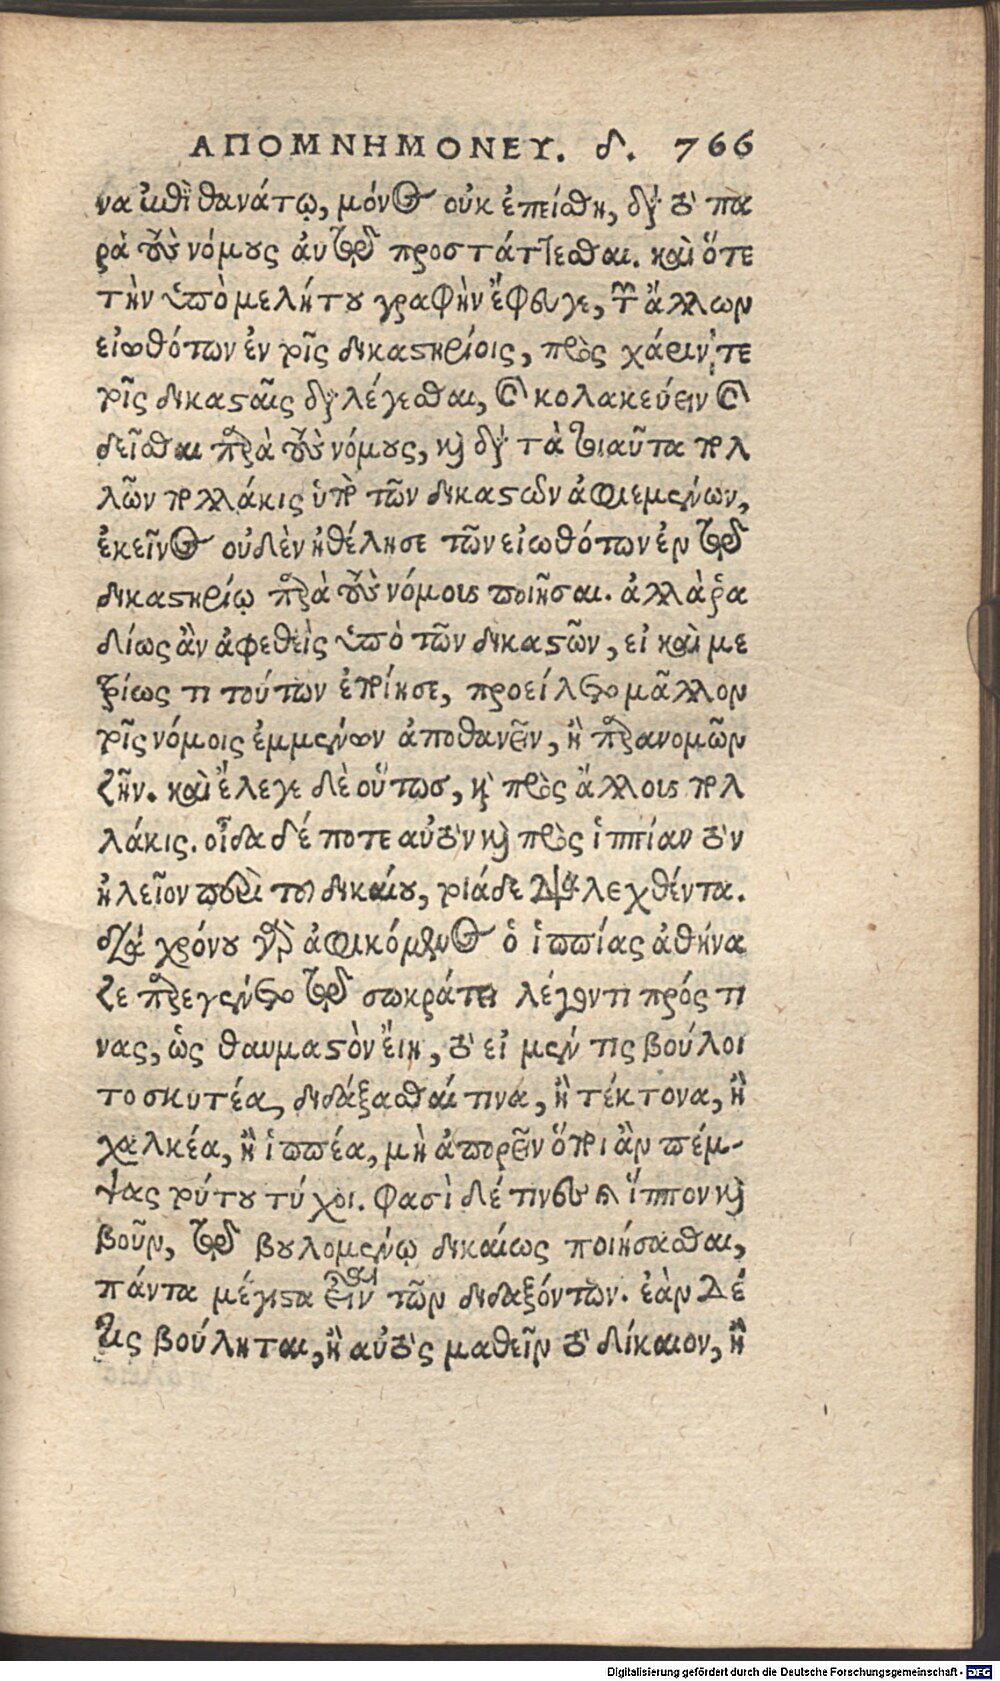 ΑΠΟΜΝΗΜΟΝΕΥ. δ. 766
να ἐπὶ θανάτῳ, μόνος οὐκ ἐπείσθη, διὰ τὸ πα
ρὰ τοὺς νόμους αὐτῷ προστάττεσθαι. καὶ ὅτε
τὴν ὑπὸ μελήτου γραφὴν ἔφευγε, τῶν ἄλλων
εἰωθότων ἐν τοῖς δικαστηρίοις, πρὸς χάριν τε
τοῖς δικασταῖς διαλέγεσθαι, καὶ κολακεύειν καὶ
δεῖσθαι παρὰ τοὺς νόμους, καὶ διὰ τὰ τοιαῦτα πολ
λῶν πολλάκις ὑπὸ τῶν δικαστῶν ἀφιεμένων,
ἐκεῖνος οὐδὲν ἠθέλησε τῶν εἰωθότων ἐν τῷ
δικαστηρίῳ παρὰ τοὺς νόμους ποιῆσαι. ἀλλὰ ῥα
δίως ἂν ἀφεθεὶς ὑπὸ τῶν δικαστῶν, εἰ καὶ με
τρίως τι τούτων ἐποίησε, προείλετο μᾶλλον
τοῖς νόμοις ἐμμένων ἀποθανεῖν, ἢ παρανομῶν
ζῆν. καὶ ἔλεγε δὲ οὕτωσ, καὶ πρὸς ἄλλους πολ
λάκις. οἶδα δέ ποτε αὐτὸν καὶ πρὸς ἱππίαν τὸν
ἠλεῖον περὶ τοῦ δικαίου, τοιάδε διαλεχθέντα.
διὰ χρόνου γὰρ ἀφικόμενος ὁ ἱππίας ἀθήνα
ζε παρεγένετο τῷ σωκράτει λέγοντι πρός τι
νας, ὡς θαυμαστὸν εἴη, τὸ εἰ μέν τις βούλοι
το σκυτέα διδάξασθαί τινα, ἢ τέκτονα, ἢ
χαλκέα, ἢ ἱππέα, μὴ ἀπορεῖν ὅποι ἂν πέμ-
ψας τούτου τύχοι. φασὶ δέ τινες καὶ ἵππον καὶ
βοῦν, τῷ βουλομένῳ δικαίως ποιήσασθαι,
πάντα μέγιστα εἶναι τῶν διδαξόντων. ἐὰν δέ
τις βούληται, ἢ αὐτὸς μαθεῖν τὸ δίκαιον, ἢ
Digitalisierung gefördert durch die Deutsche Forschungsgemeinschaft - DFG